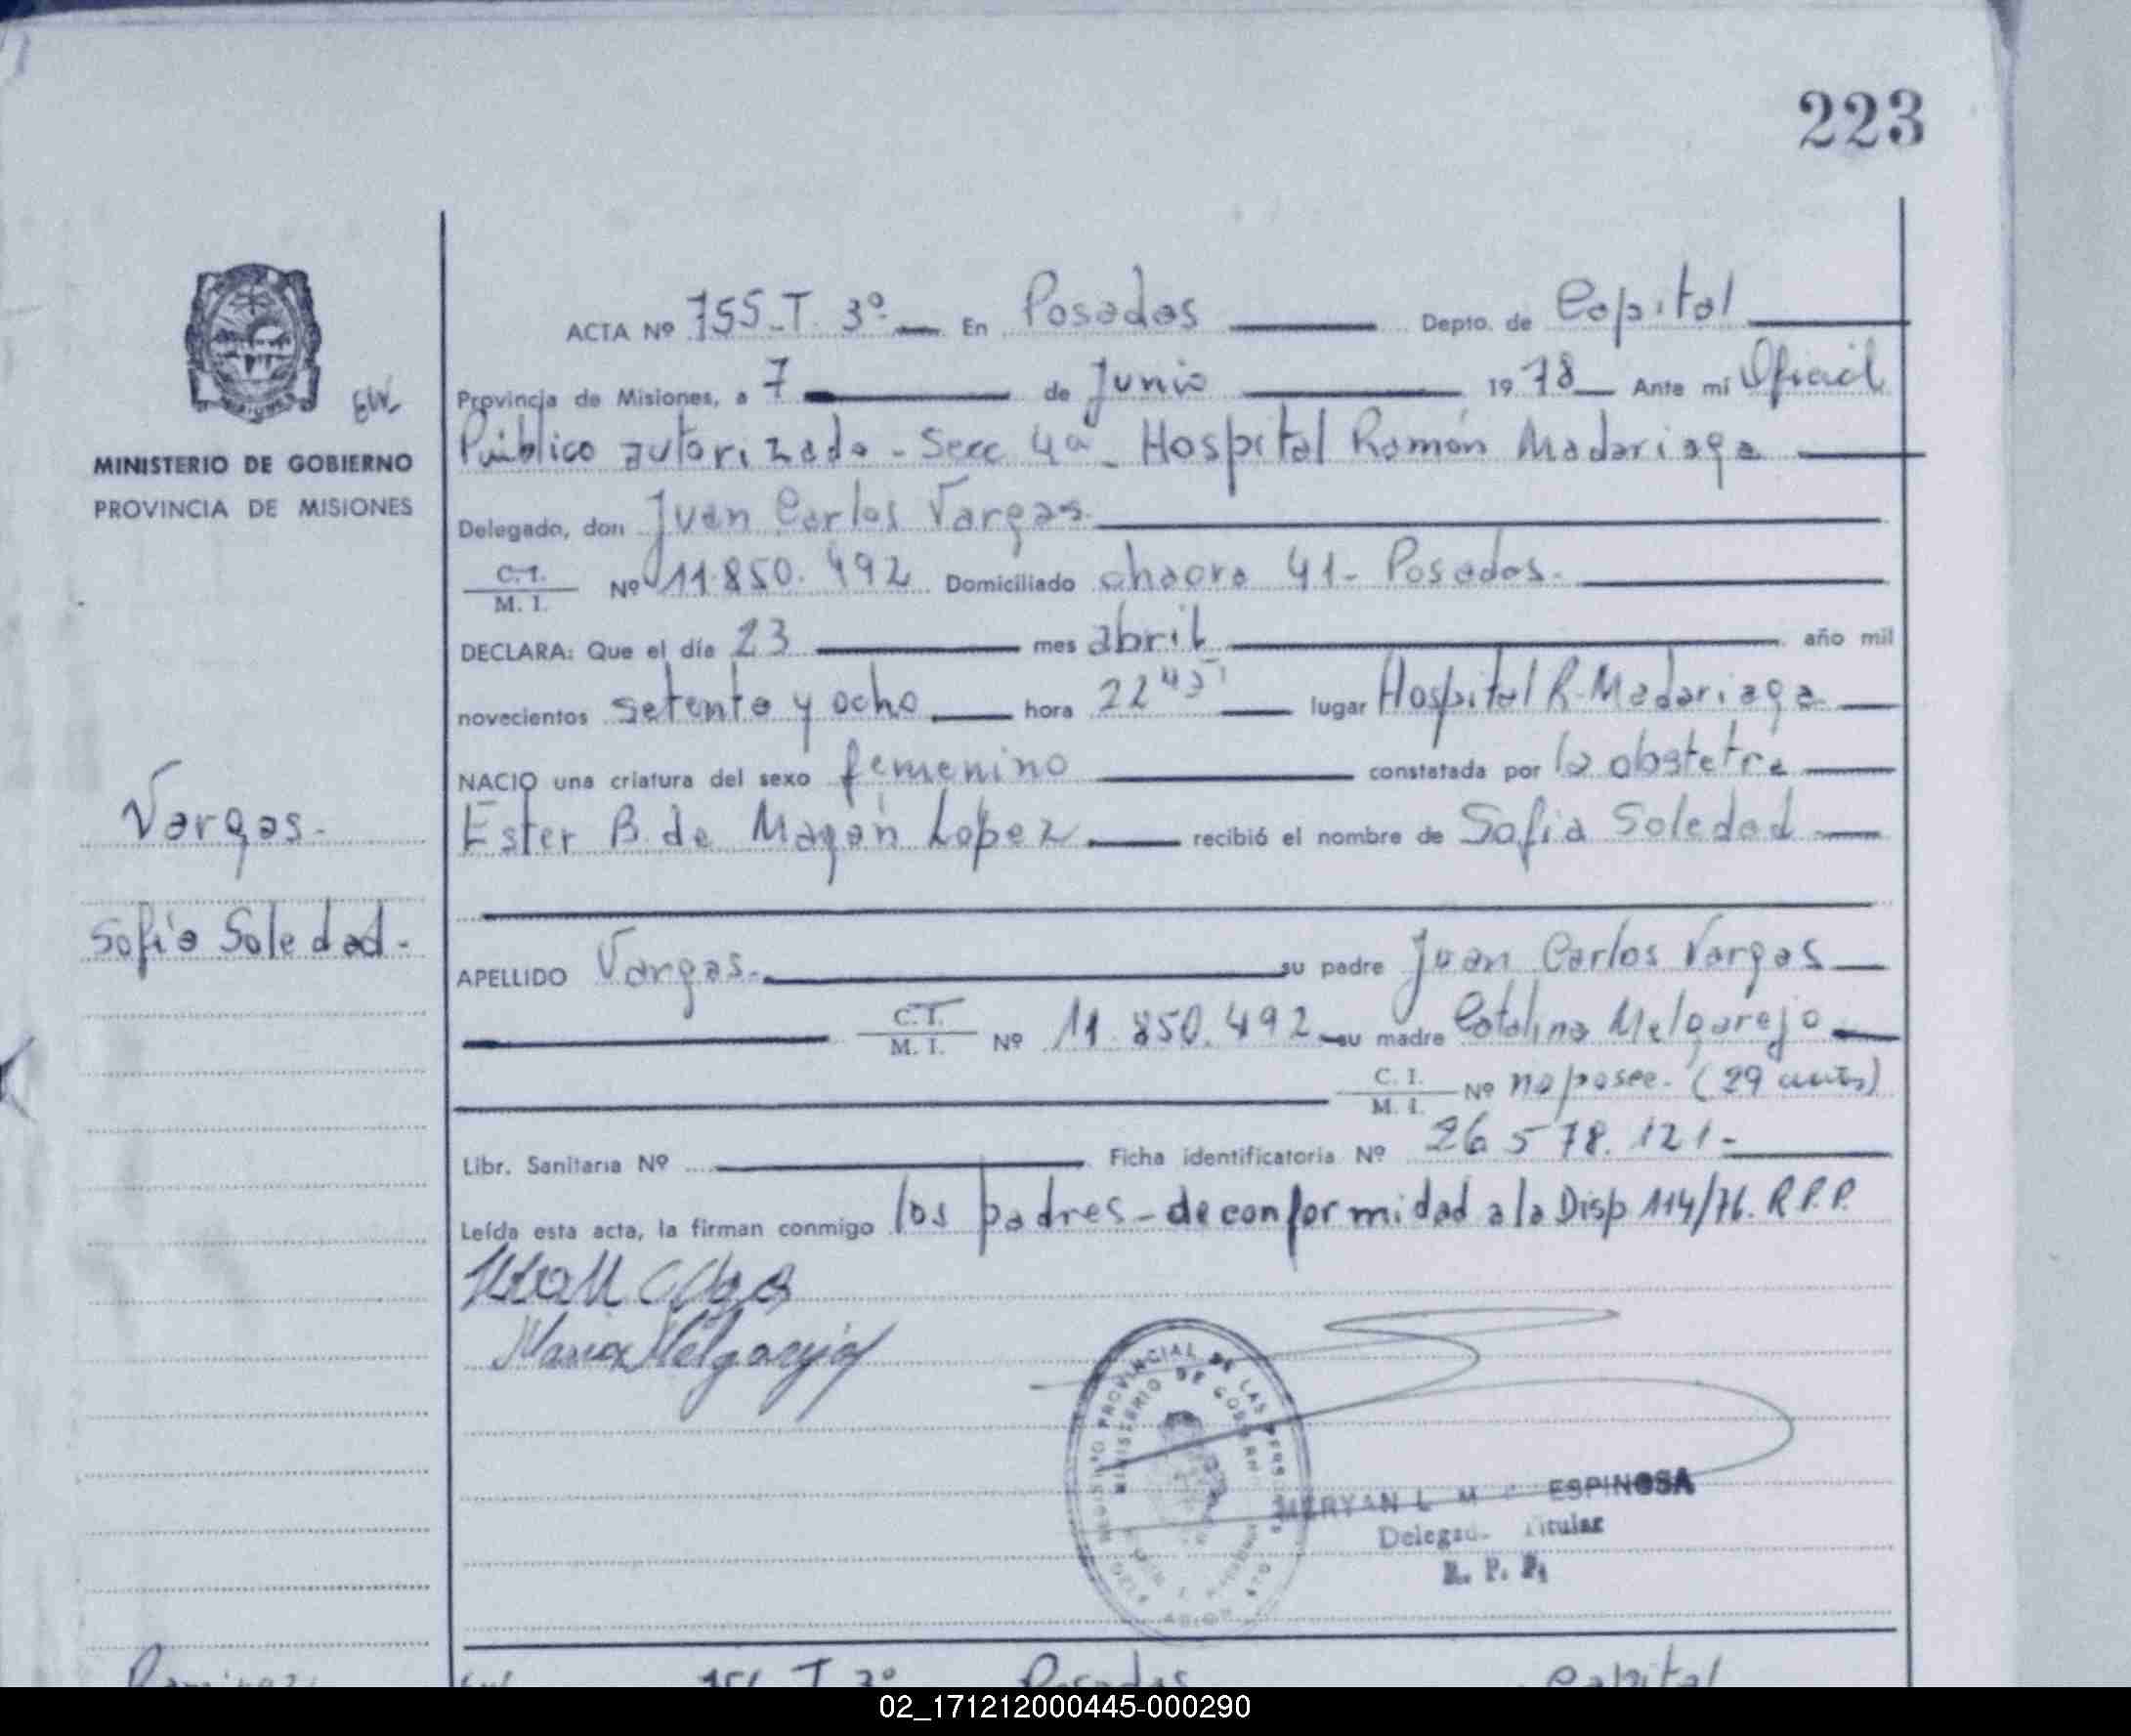 223
ACTA Nº 755-T 3º En Posadas Depto. de Capital
Provincia de Misiones, a 7 de Junio 1978 Ante mí Oficial
Público autorizado - Secc 4ª - Hospital Ramón Madariaga
MINISTERIO DE GOBIERNO
PROVINCIA DE MISIONES
Delegado, don Juan Carlos Vargas.
C.I. / M. I. Nº 11.850.492 Domiciliado chacra 41 - Posadas.
DECLARA: Que el día 23 mes abril año mil
novecientos setenta y ocho hora 22 45 lugar Hospital R. Madariaga
NACIO una criatura del sexo femenino constatada por la obstetra
Ester B. de Magán Lopez recibió el nombre de Sofia Soledad
Vargas.
Sofia Soledad.
APELLIDO Vargas. su padre Juan Carlos Vargas
C.I. / M. I. Nº 11.850.492 su madre Catalina Melgarejo
C. I. / M. I. Nº no posee. (29 años)
Libr. Sanitaria Nº Ficha identificatoria Nº 26 578.121.
Leída esta acta, la firman conmigo los padres - de conformidad a la Disp 114/76. R.P.P.
Maria Melgarejo
PROVINCIAL DE LAS
MINISTERIO DE
MERYAN L M ESPINOSA
Titular
R. P. P.
T 3º Posadas Capital
02_171212000445-000290